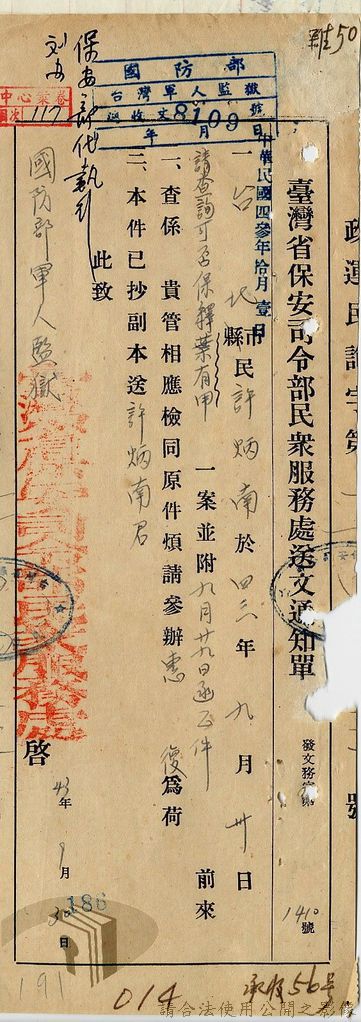 難50
政運民
號
臺灣省保安司令部民衆服務處送文通知單
發文務
1410號
中華民國四參年拾月壹日
一、台北市縣民許炳南於四三年九月卅日
前來
請查詢可否保釋葉有甲
一案並附九月廿九日函乙件
一、查係 貴管相應檢同原件煩請參辦惠復爲荷
二、本件已抄副本送許炳南君
此致
國防部軍人監獄
啓
43年9月30日
保安部代執行
國防部
台灣軍人監獄
收文8109號
年 月 日
117
民衆服務處
186
191
014
承收56号
請合法使用公開之影像